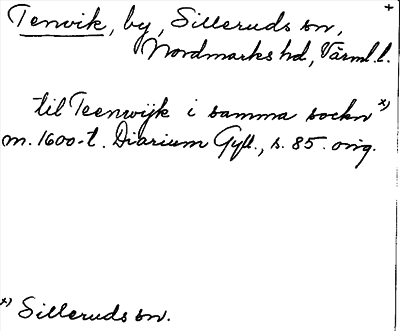 Tenvik, by, Silleruds sn, +
Nordmarks hd, Värml. l.
til Teenwijk i samma sockn x)
m. 1600-t. Diarium Gyll., s. 85. orig.
x) Silleruds sn.